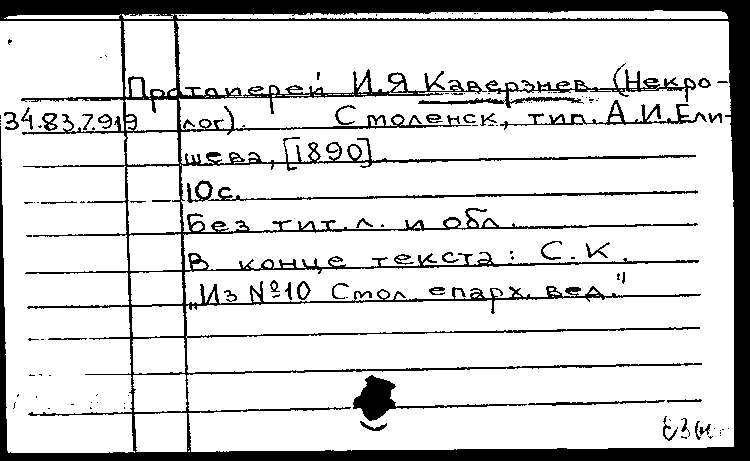 Протоиерей И.Я Каверзнев. (Некро-
34.83.7.919 лог). Смоленск, тип. А.И.Ели-
шева, [1890].
10 с.
Без тит. л. и обл.
В конце текста: С.К.
„Из №10 Смол. епарх. вед."